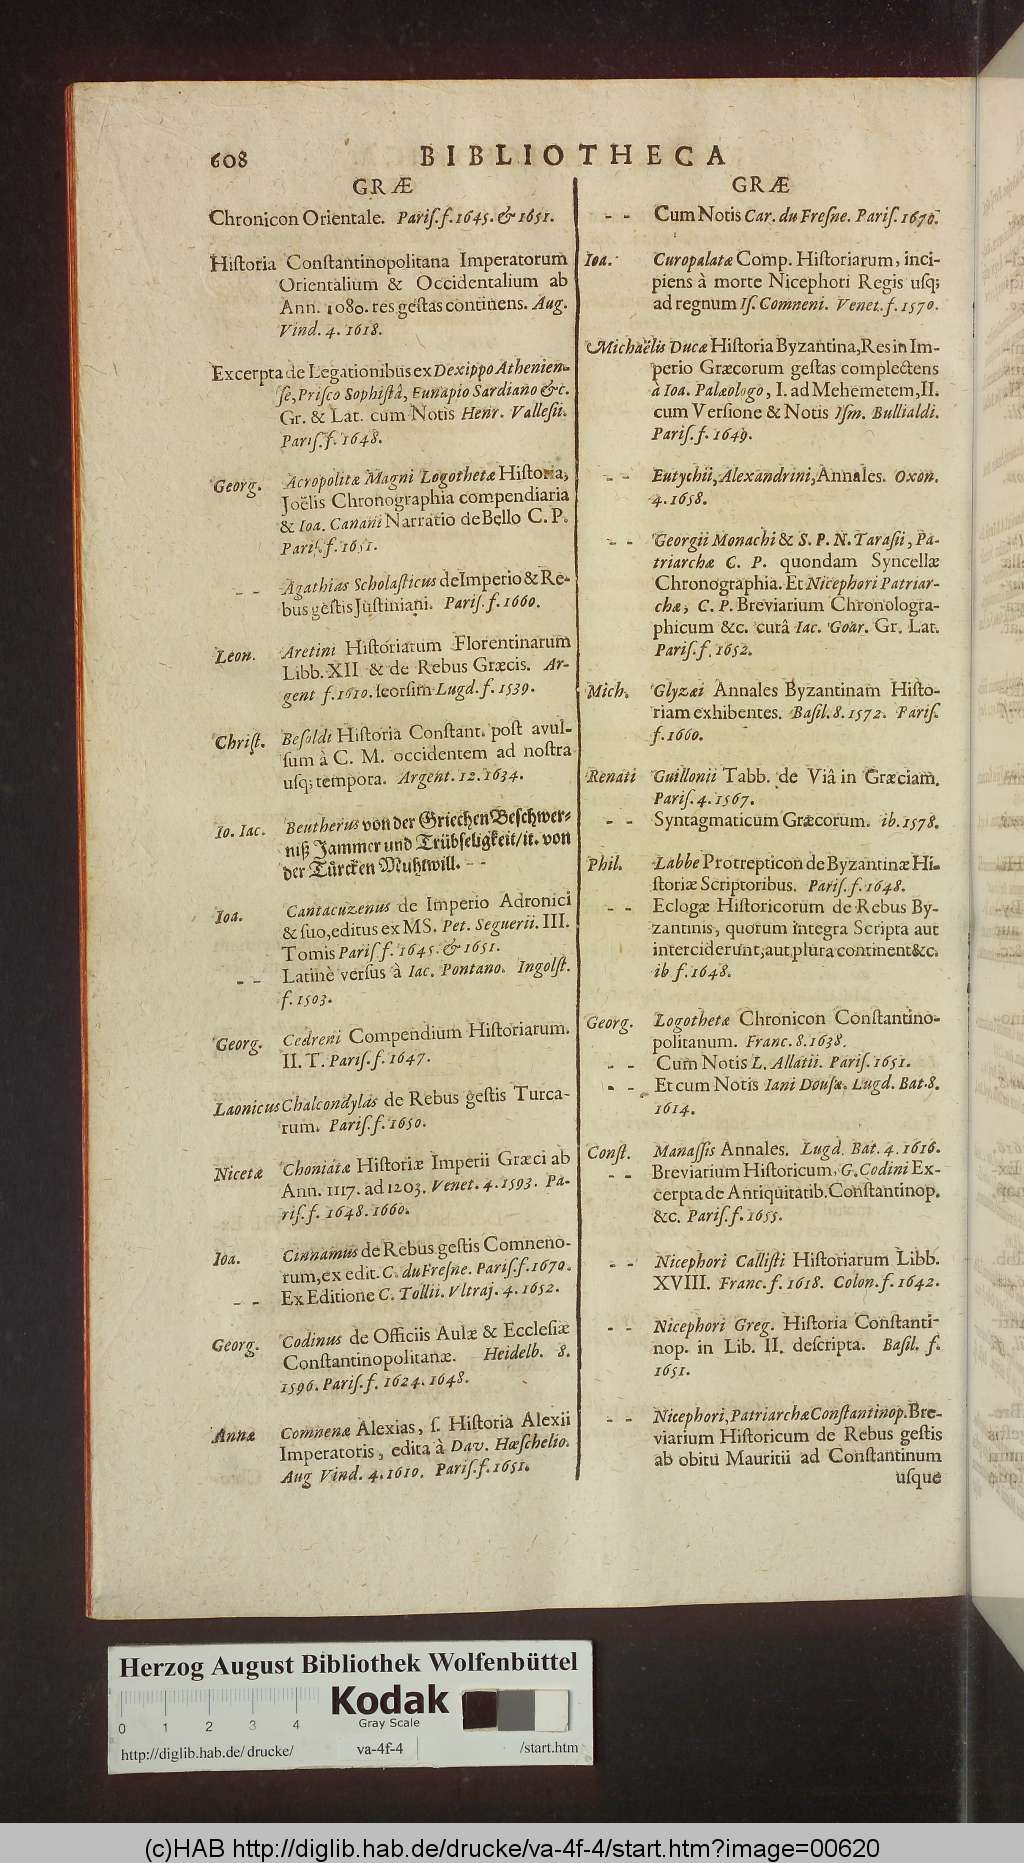 608
BIBLIOTHECA
GRÆ
Chronicon Orientale. Pariſ. f. 1645. & 1651.
Hiſtoria Conſtantinopolitana Imperatorum
Orientalium & Occidentalium ab
Ann. 1080. res geſtas continens. Aug.
Vind. 4. 1618.
Excerpta de Legationibus ex Dexippo Athenien-
ſe, Priſco Sophiſtâ, Eunapio Sardiano &c.
Gr. & Lat. cum Notis Henr. Valleſii.
Pariſ. f. 1648.
Georg. Acropolitæ Magni Logothetæ Hiſtoria,
Joëlis Chronographia compendiaria
& Ioa. Canani Narratio de Bello C. P.
Pariſ. f. 1651.
- - Agathias Scholaſticus de Imperio & Re-
bus geſtis Juſtiniani. Pariſ. f. 1660.
Leon. Aretini Hiſtoriarum Florentinarum
Libb. XII & de Rebus Græcis. Ar-
gent f. 1610. ſeorſim Lugd. f. 1539.
Chriſt. Beſoldi Hiſtoria Conſtant. poſt avul-
ſum à C. M. occidentem ad noſtra
uſq; tempora. Argent. 12. 1634.
Io. Iac. Beutherus von der Griechen Beſchwer-
niß Jammer und Trübſeligkeit/it. von
der Türcken Muhtwill. - -
Ioa. Cantacuzenus de Imperio Adronici
& ſuo, editus ex MS. Pet. Seguerii. III.
Tomis Pariſ f. 1645. & 1651.
- - Latinè verſus à Iac. Pontano. Ingolſt.
f. 1503.
Georg. Cedreni Compendium Hiſtoriarum.
II. T. Pariſ. f. 1647.
Laonicus Chalcondylas de Rebus geſtis Turca-
rum. Pariſ. f. 1650.
Nicetæ Choniatæ Hiſtoriæ Imperii Græci ab
Ann. 1117. ad 1203. Venet. 4. 1593. Pa-
riſ. f. 1648. 1660.
Ioa. Cinnamus de Rebus geſtis Comneno-
rum, ex edit. C. du Freſne. Pariſ. f. 1670.
- - Ex Editione C. Tollii. Vltraj. 4. 1652.
Georg. Codinus de Officiis Aulæ & Eccleſiæ
Conſtantinopolitanæ. Heidelb. 8.
1596. Pariſ. f. 1624. 1648.
Annæ Comnenæ Alexias, ſ. Hiſtoria Alexii
Imperatoris, edita à Dav. Hœſchelio.
Aug Vind. 4. 1610. Pariſ. f. 1651.
GRÆ
- - Cum Notis Car. du Freſne. Pariſ. 1670.
Ioa. Curopalatæ Comp. Hiſtoriarum, inci-
piens à morte Nicephori Regis uſq;
ad regnum Iſ. Comneni. Venet. f. 1570.
Michaëlis Ducæ Hiſtoria Byzantina, Res in Im-
perio Græcorum geſtas complectens
à Ioa. Palæologo, I. ad Mehemetem, II.
cum Verſione & Notis Iſm. Bullialdi.
Pariſ. f. 1649.
- - Eutychii, Alexandrini, Annales. Oxon.
4. 1658.
- - Georgii Monachi & S. P. N. Taraſii, Pa-
triarchæ C. P. quondam Syncellæ
Chronographia. Et Nicephori Patriar-
chæ, C. P. Breviarium Chronologra-
phicum &c. curâ Iac. Goar. Gr. Lat.
Pariſ. f. 1652.
Mich. Glyzæi Annales Byzantinam Hiſto-
riam exhibentes. Baſil. 8. 1572. Pariſ.
f. 1660.
Renati Guillonii Tabb. de Viâ in Græciam.
Pariſ. 4. 1567.
- - Syntagmaticum Græcorum. ib. 1578.
Phil. Labbe Protrepticon de Byzantinæ Hi-
ſtoriæ Scriptoribus. Pariſ. f. 1648.
- - Eclogæ Hiſtoricorum de Rebus By-
zantinis, quorum integra Scripta aut
interciderunt, aut plura continent &c.
ib f. 1648.
Georg. Logothetæ Chronicon Conſtantino-
politanum. Franc. 8. 1638.
- - Cum Notis L. Allatii. Pariſ. 1651.
- - Et cum Notis Iani Douſæ. Lugd. Bat. 8.
1614.
Conſt. Manaſſis Annales. Lugd. Bat. 4. 1616.
- - Breviarium Hiſtoricum, G. Codini Ex-
cerpta de Antiquitatib. Conſtantinop.
&c. Pariſ. f. 1655.
- - Nicephori Calliſti Hiſtoriarum Libb.
XVIII. Franc. f. 1618. Colon. f. 1642.
- - Nicephori Greg. Hiſtoria Conſtanti-
nop. in Lib. II. deſcripta. Baſil. f.
1651.
- - Nicephori, Patriarchæ Conſtantinop. Bre-
viarium Hiſtoricum de Rebus geſtis
ab obitu Mauritii ad Conſtantinum
uſque
Herzog August Bibliothek Wolfenbüttel
Kodak
Gray Scale
0 1 2 3 4
http://diglib.hab.de/drucke/ va-4f-4 /start.htm
(c)HAB http://diglib.hab.de/drucke/va-4f-4/start.htm?image=00620